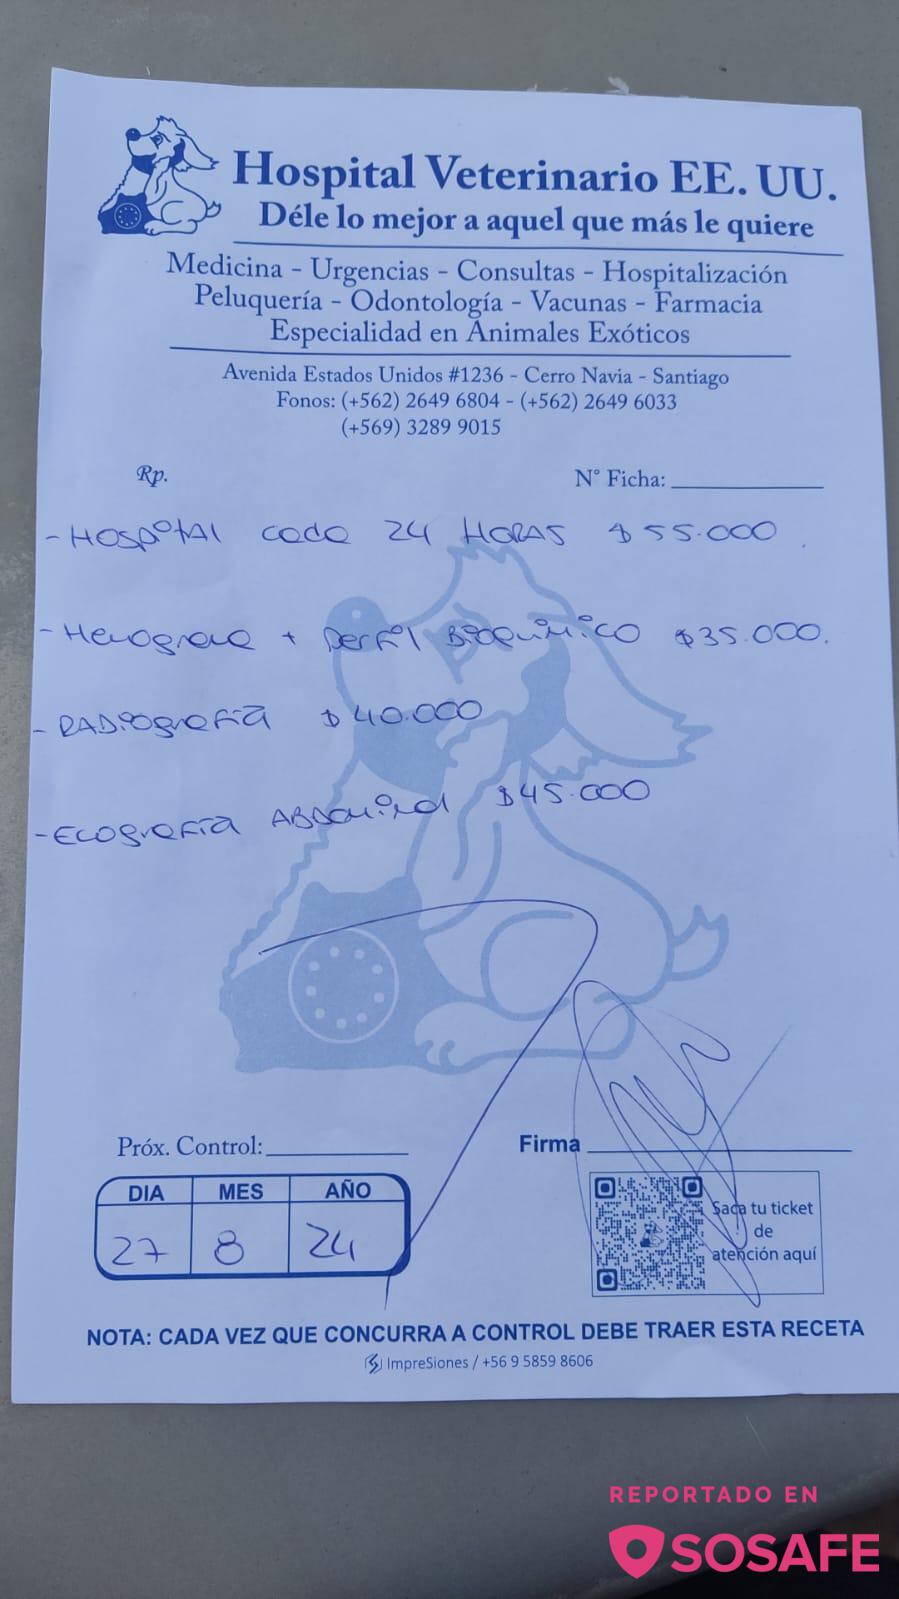 Hospital Veterinario EE. UU.
Déle lo mejor a aquel que más le quiere
Medicina - Urgencias - Consultas - Hospitalización
Peluquería - Odontología - Vacunas - Farmacia
Especialidad en Animales Exóticos
Avenida Estados Unidos #1236 - Cerro Navia - Santiago
Fonos: (+562) 2649 6804 - (+562) 2649 6033
(+569) 3289 9015
Rp.
N° Ficha:
- HOSPITAL cada 24 HORAS $55.000
- Hemograma + Perfil Bioquimico $35.000.
- RADiografía $40.000
- Ecografía ABDominal $45.000
Próx. Control:
Firma
DIA MES AÑO
27 8 24
Saca tu ticket
de
atención aquí
NOTA: CADA VEZ QUE CONCURRA A CONTROL DEBE TRAER ESTA RECETA
ImpreSiones / +56 9 5859 8606
REPORTADO EN
SOSAFE